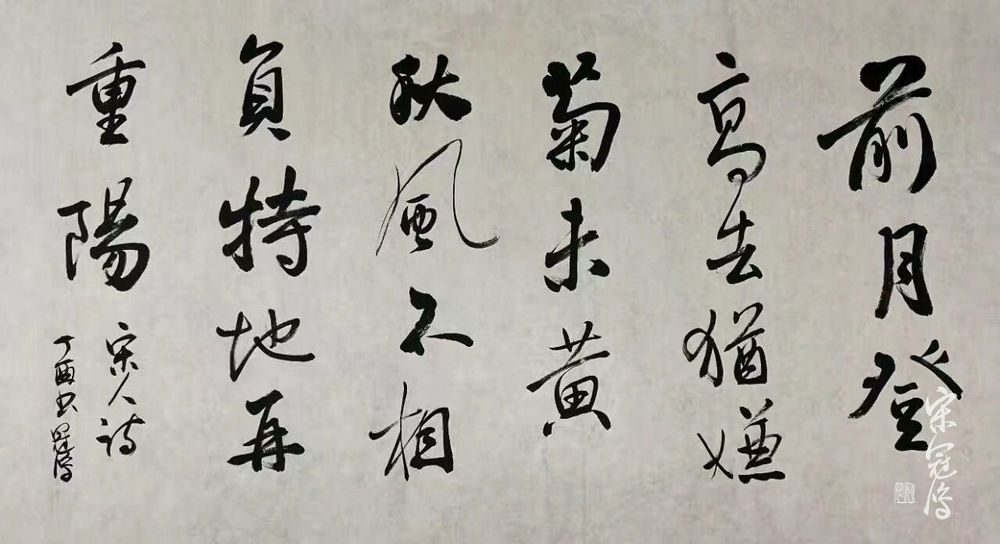 前月登
高去猶嫌
菊未黄
秋風不相
負特地再
重陽
宋人詩
丁酉書冠岳
宋冠岳